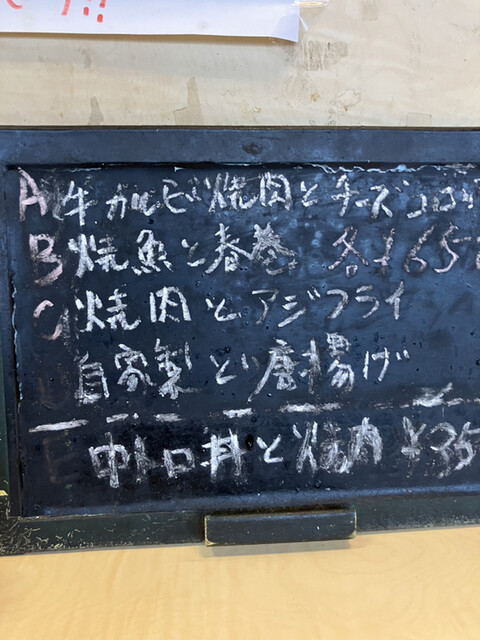 です!!
A 牛カルビ焼肉とチーズコロッ
B 焼魚と春巻 各¥65
C 焼肉とアジフライ
自家製とり唐揚げ
中トロ丼と焼肉 ¥35